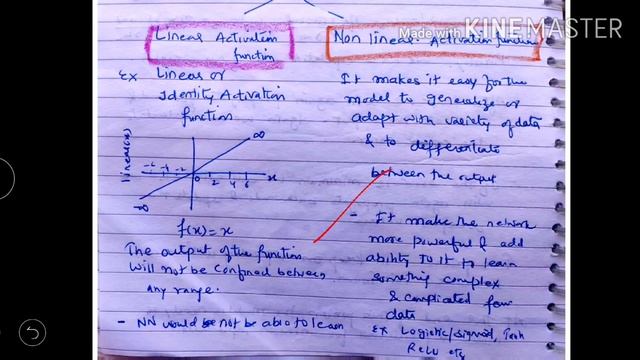 Made with KINEMASTER
Linear Activation
function
Ex Linear or
Identity Activation
function
linear(x)
∞
-6 -4 -2 0 2 4 6 x
-∞
f(x) = x
The output of the function
will not be confined between
any range.
- NN would be not be able to learn
Non linear Activation function
It makes it easy for the
model to generalize or
adapt with variety of data
& to differentiate
between the output
- It make the network
more powerful & add
ability to it to learn
something complex
& complicated from
data
Ex Logistic/sigmoid, Tanh
Relu etc